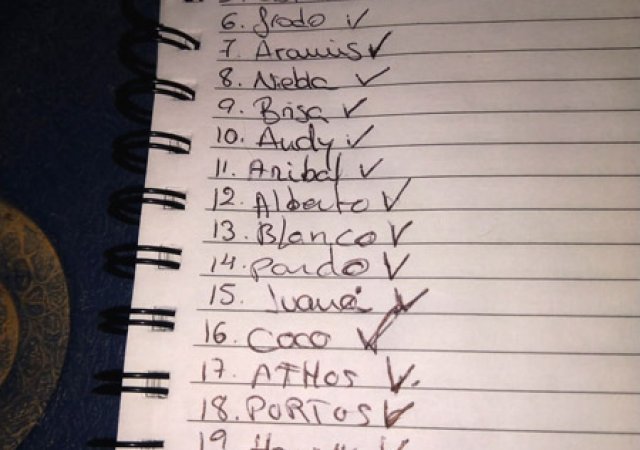 6. frodo ✓
7. Aramis ✓
8. Niebla ✓
9. Brisa ✓
10. Audy ✓
11. Anibal ✓
12. Alberto ✓
13. Blanco ✓
14. pardo ✓
15. Juana ✓
16. Coco ✓
17. ATHOS ✓.
18. PORTOS ✓
19